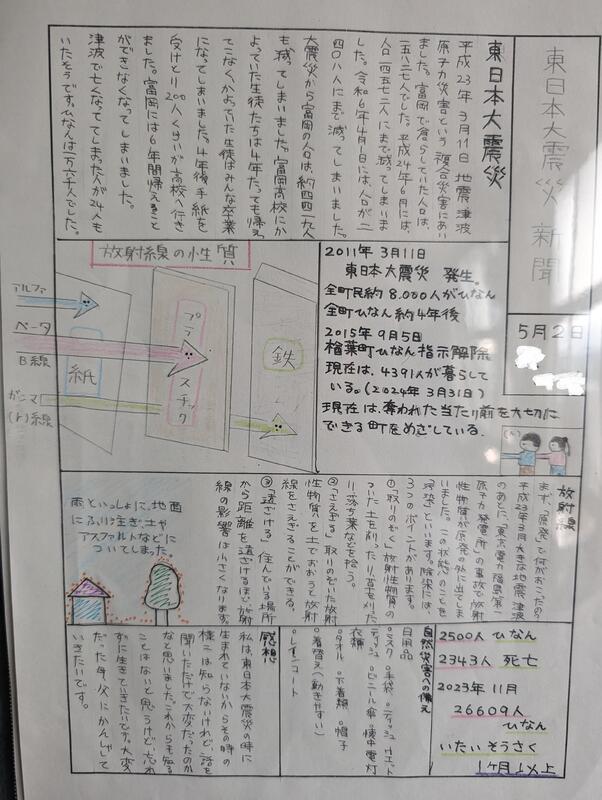 東日本大震災 新聞
5月2日
東日本大震災
平成23年3月11日 地震 津波
原子力災害という複合災害にあい
ました。富岡で倉らしていた人口は、
一五八二七人でした。平成24年6月には、
人口一四五七二人にまで減ってしまいま
した。令和6年4月1日には、人口が二
四〇八人にまで減ってしまいました。
大震災から富岡の人口は、約四四一九人
も減ってしまいました。富岡高校にか
よっていた生徒たちは4年たっても帰え
てこなく、かよっていた生徒はみんな卒業
になってしまいました。4年後手紙を
受けとり200人くらいが高校へ行き
ました。富岡には6年間帰えること
ができなくなってしまいました。
津波で亡くなってしまった人が24人も
いたそうです。ひなんは一万六千人でした。
放射線の性質
アルファ
ベータ
B線
ガンマ
(r)線
紙
プラスチック
鉄
2011年 3月11日
東日本大震災 発生。
全町民約8.000人がひなん
全町ひなん約4年後
2015年9月5日
楢葉町ひなん指示解除
現在は、4391人が暮らして
いる。(2024年3月31日)
現在は、奪われた当たり前を大切に
できる町をめざしている。
放射線
まず、「原発」で何がおこったの?
平成23年3月大きな地震、津波
のあと、「東京電力福島第一
原子力発電所」の事故で放射
性物質が原発の外に出てしま
いました。この状態のことを
「汚染」といいます。除染には、
3つのポイントがあります。
①「取りのぞく」放射性物質の
ついた土を削ったり、草を刈った
り、落ち葉などを拾う。
②「さえぎる」取りのぞいた放射
性物質を土でおおうと放射
線をさえぎることができる。
③「遠ざける」住んでいる場所
から距離を遠ざけるほど放射
線の影響は小さくなります。
雨といっしょに、地面
にふり注ぎ、土や
アスファルトなどに
ついてしまった。
2500人 ひなん
2343人 死亡
2023年11月
26609人
ひなん
いたいそうさく
1ヶ月1以上
自然災害への備え
日用品
○マスク ○手袋 ○ティッシュ(ウエット
ティッシュ ○ビニール傘 ○懐中電灯
衣類
○タオル ○下着類 ○帽子
○着替え(動きやすい)
○レインコート
感想
私は、東日本大震災の時に
生まれていないからその時の
様子は知らないけれど、話を
聞いただけで大変だったのか
なと思いました。これからも知る
ことはないと思うけど、忘れ
ずに生きていきたいです。大変
だった母、父にかんしゃして
いきたいです。